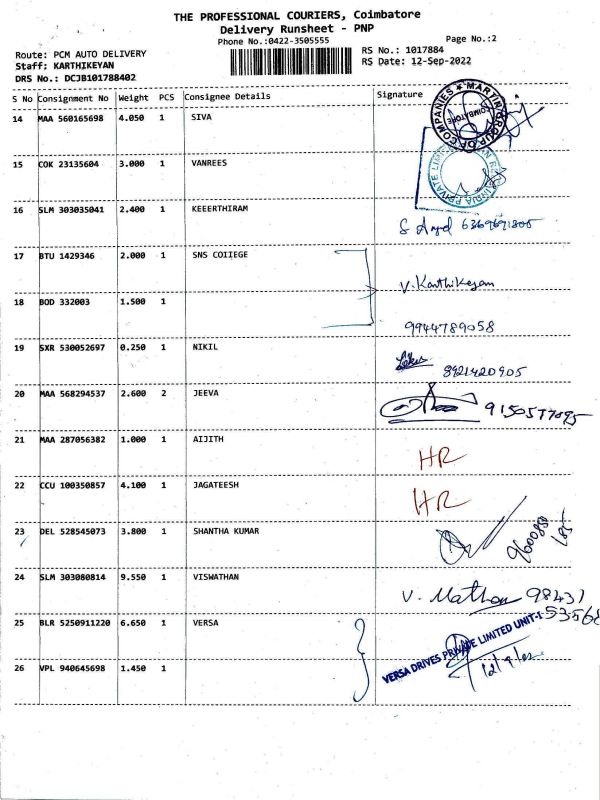 THE PROFESSIONAL COURIERS, Coimbatore
Delivery Runsheet - PNP
Phone No.:0422-3505555
Page No.:2
Route: PCM AUTO DELIVERY
RS No.: 1017884
Staff: KARTHIKEYAN
RS Date: 12-Sep-2022
DRS No.: DCJB101788402
S No Consignment No Weight PCS Consignee Details Signature
14 MAA 560165698 4.050 1 SIVA
MARTIN GROUP OF COMPANIES
COIMBATORE
15 COK 23135604 3.000 1 VANREES
16 SLM 303035041 2.400 1 KEEERTHIRAM
6369691805
17 BTU 1429346 2.000 1 SNS COIIEGE
V. Karthikeyan
18 BOD 332003 1.500 1
9944789058
19 SXR 530052697 0.250 1 NIKIL
8921420905
20 MAA 568294537 2.600 2 JEEVA
9150577095
21 MAA 287056382 1.000 1 AIJITH
HR
22 CCU 100350857 4.100 1 JAGATEESH
HR
23 DEL 528545073 3.800 1 SHANTHA KUMAR
24 SLM 303080814 9.550 1 VISWATHAN
V. Mathan 98431
53568
25 BLR 5250911220 6.650 1 VERSA
VERSA DRIVES PRIVATE LIMITED UNIT-I
26 VPL 940645698 1.450 1